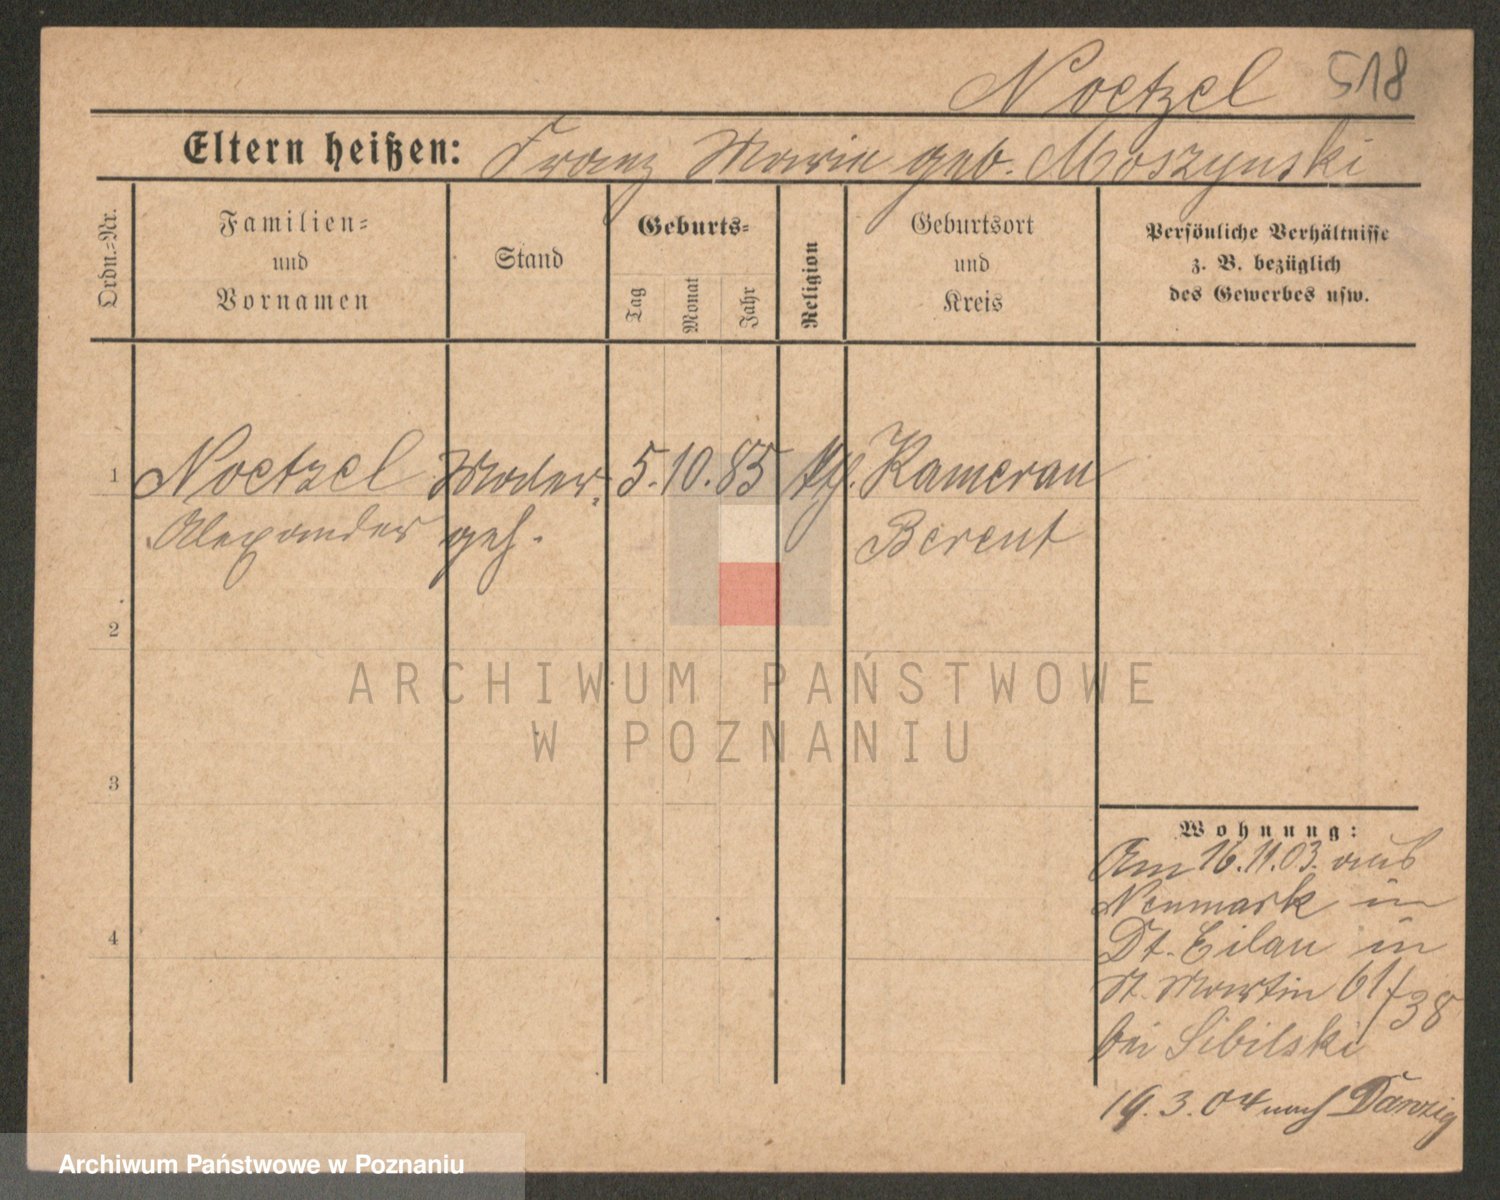 Noetzel 518
Eltern heißen: Franz Marie geb. Moszynski
Ordn.-Nr.
Familien-
und
Vornamen
Stand
Geburts-
Tag
Monat
Jahr
Religion
Geburtsort
und
Kreis
Persönliche Verhältnisse
z. B. bezüglich
des Gewerbes usw.
1 Noetzel Maler- 5. 10. 85 kth. Kameran
Alexander geh. Berent
2
3
4
Wohnung:
Am 16.11.03. aus
Neumark in
Dt. Eilau in
St. Martin 61/38
bei Sibilski
19. 3. 04 nach Danzig
ARCHIWUM PAŃSTWOWE
W POZNANIU
Archiwum Państwowe w Poznaniu